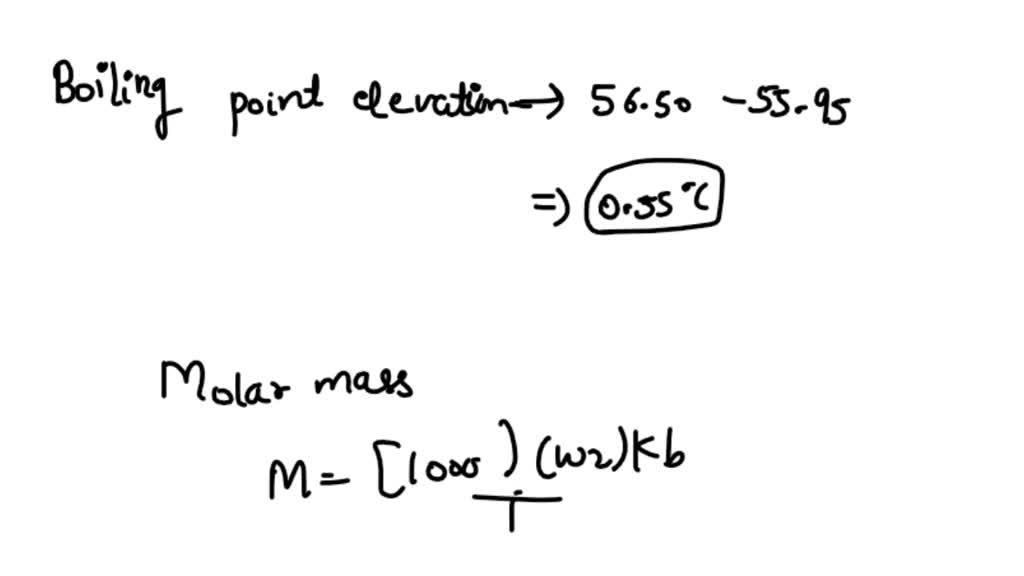 Boiling point elevation → 56.50 - 55.95
⇒ 0.55°C
Molar mass
M = [1000) (w2) Kb
T